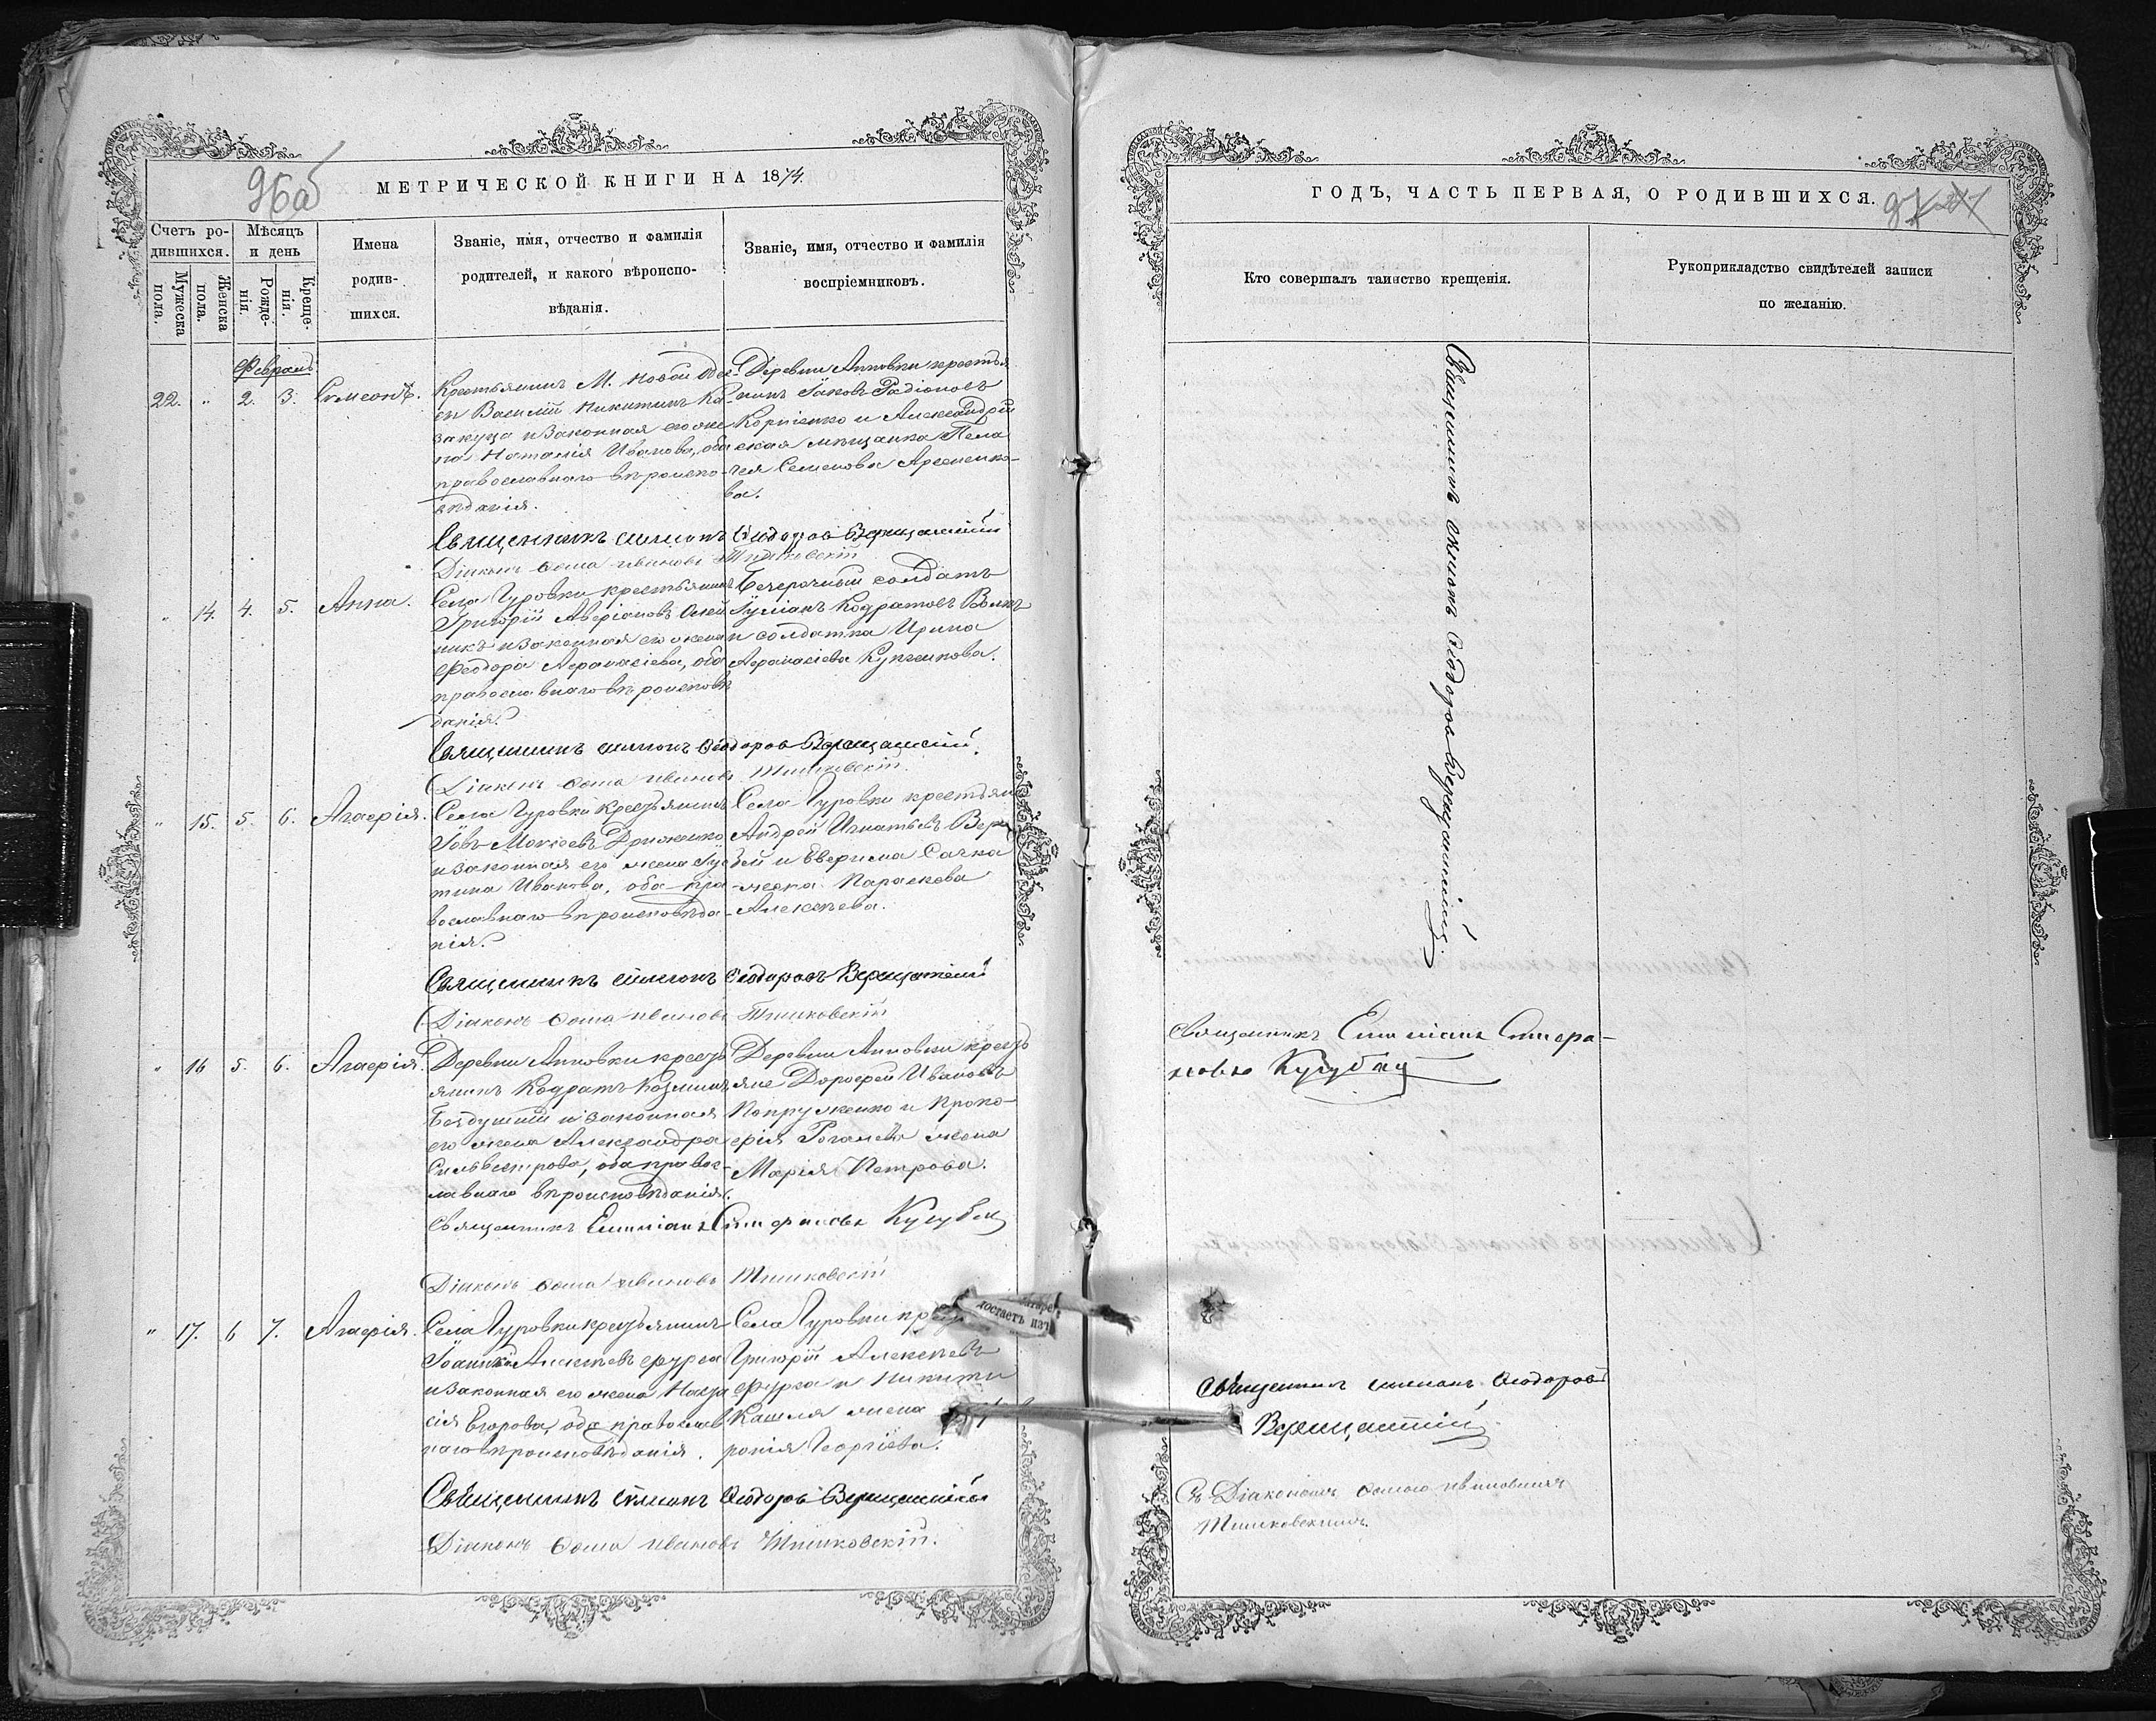 96об
МЕТРИЧЕСКОЙ КНИГИ НА 1874.
Счетъ ро-
дившихся.
Мужеска
пола.
Женска
пола.
Мѣсяцъ
и день
Рожде-
нія.
Креще-
нія.
Имена
родив-
шихся.
Званіе, имя, отчество и фамилія
родителей, и какого вѣроиспо-
вѣданія.
Званіе, имя, отчество и фамилія
воспріемниковъ.
22. " 2. 3. Симеонъ.
Крестьянинъ М. Новой
Василій Никитинъ Ка-
закуца и законная его же-
на Наталія Иванова, оба
православнаго вѣроиспо-
вѣданія.
Деревни Анновки крестья-
нинъ Іаковъ Радіоновъ
Корніенко и Александрій
ская мѣщанка Пела
гея Семенова Арсененко-
ва.
Священникъ Симеонъ Ѳеодоровъ Верещацкій
Діаконъ Ѳома Ивановъ Тишковскій
" 14. 4. 5. Анна.
Села Гуровки крестьянинъ
Григорій Аверіановъ Олей
никъ и законная его жена
Феодора Афанасіева, оба
православнаго вѣроисповѣ
данія.
Безсрочный солдатъ
Іуліанъ Кодратовъ Волкъ
и солдатка Ирина
Афанасіева
Священникъ Симеонъ Ѳеодоровъ Верещацкій.
Діаконъ Ѳома Ивановъ Тишковскій.
" 15. 5. 6. Агафія.
Села Гуровки крестьянинъ
Іовъ Мокіевъ
и законная его жена Іус
тина Иванова, оба пра-
вославнаго вѣроисповѣда-
нія.
Села Гуровки крестьяне
Андрей Игнатьевъ Вер
бей и Евфима Сачка
жена Параскева
Алексѣева.
Священникъ Симеонъ Ѳеодоровъ Верещацкій
Діаконъ Ѳома Ивановъ Тишковскій
" 16 5. 6. Агафія.
Деревни Анновки кресть
янинъ Кодратъ Козминъ
Бездушный и законная
его жена Александра
Сильвестрова, оба правос-
лавнаго вѣроисповѣданія.
Деревни Анновки кресть
яне Дорофей Ивановъ
Попруженко и Проко-
фія Рогачева жена
Марія Петрова.
Священникъ Емиліанъ Стефановъ Кугубей
Діаконъ Ѳома Ивановъ Тишковскій
" 17. 6 7. Агафія.
Села Гуровки крестьянинъ
Іоанникій Алексѣевъ Фурса
и законная его жена Наста
сія Егорова, оба православ
наго вѣроисповѣданія.
Села Гуровки
Григорій Алексѣевъ
Фурса и Никиты
Кашля жена
ронія Георгіева.
Священникъ Симеонъ Ѳеодоровъ Верещацкій
Діаконъ Ѳома Ивановъ Тишковскій.
достаетъ изъ
ГОДЪ, ЧАСТЬ ПЕРВАЯ, О РОДИВШИХСЯ.
97
Кто совершалъ таинство крещенія.
Рукоприкладство свидѣтелей записи
по желанію.
Священникъ Симеонъ Ѳеодоровъ Верещацкій
Священникъ Емиліанъ Стефа-
новъ Кугубей
Священникъ Симеонъ Ѳеодоровъ
Верещацкій
Съ Діакономъ Ѳомою Ивановымъ
Тишковскимъ.